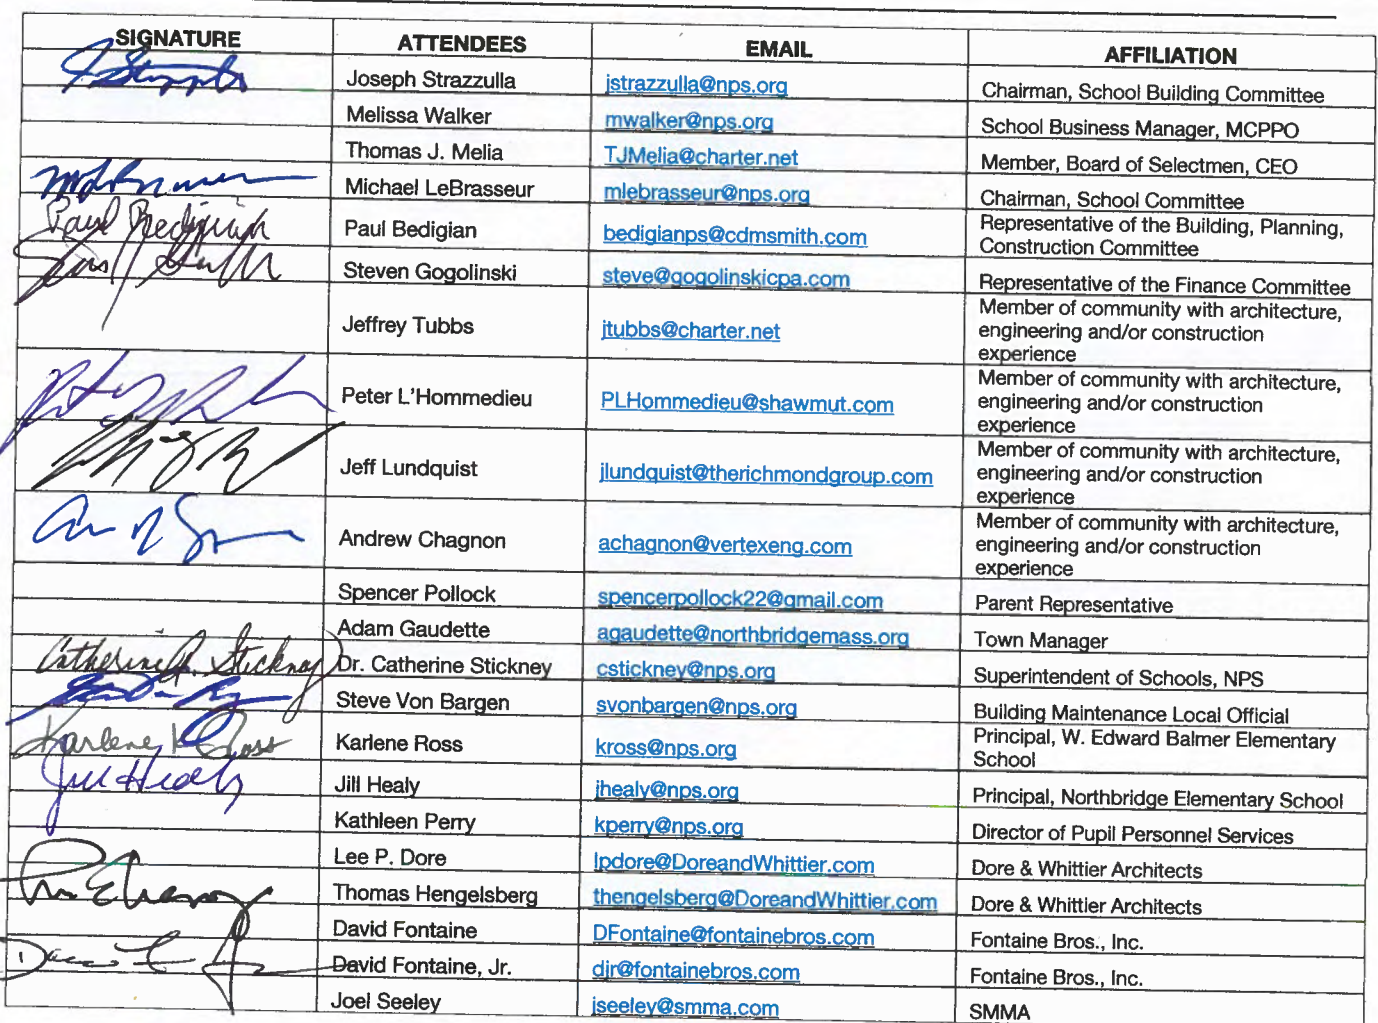 SIGNATURE ATTENDEES EMAIL AFFILIATION
Joseph Strazzulla jstrazzulla@nps.org Chairman, School Building Committee
Melissa Walker mwalker@nps.org School Business Manager, MCPPO
Thomas J. Melia TJMelia@charter.net Member, Board of Selectmen, CEO
Michael LeBrasseur mlebrasseur@nps.org Chairman, School Committee
Paul Bedigian Paul Bedigian bedigianps@cdmsmith.com Representative of the Building, Planning,
Construction Committee
Steven Gogolinski steve@gogolinskicpa.com Representative of the Finance Committee
Jeffrey Tubbs jtubbs@charter.net Member of community with architecture,
engineering and/or construction
experience
Peter L'Hommedieu PLHommedieu@shawmut.com Member of community with architecture,
engineering and/or construction
experience
Jeff Lundquist jlundquist@therichmondgroup.com Member of community with architecture,
engineering and/or construction
experience
Andrew Chagnon achagnon@vertexeng.com Member of community with architecture,
engineering and/or construction
experience
Spencer Pollock spencerpollock22@gmail.com Parent Representative
Adam Gaudette agaudette@northbridgemass.org Town Manager
Catherine A. Stickney Dr. Catherine Stickney cstickney@nps.org Superintendent of Schools, NPS
Steve Von Bargen svonbargen@nps.org Building Maintenance Local Official
Karlene K Ross Karlene Ross kross@nps.org Principal, W. Edward Balmer Elementary
School
Jill Healy Jill Healy jhealy@nps.org Principal, Northbridge Elementary School
Kathleen Perry kperry@nps.org Director of Pupil Personnel Services
Lee P. Dore lpdore@DoreandWhittier.com Dore & Whittier Architects
Thomas Hengelsberg thengelsberg@DoreandWhittier.com Dore & Whittier Architects
David Fontaine DFontaine@fontainebros.com Fontaine Bros., Inc.
David Fontaine, Jr. djr@fontainebros.com Fontaine Bros., Inc.
Joel Seeley jseeley@smma.com SMMA